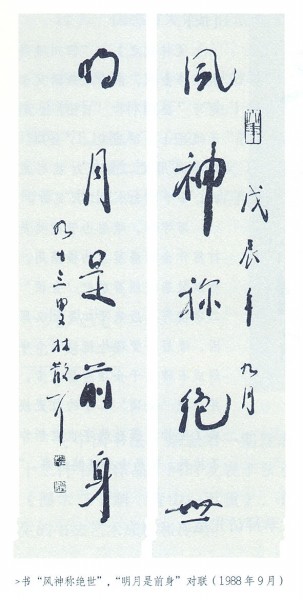 风神称绝世
戊辰年九月
明月是前身
九十三叟林散耳
>书“风神称绝世”，“明月是前身”对联（1988年9月）